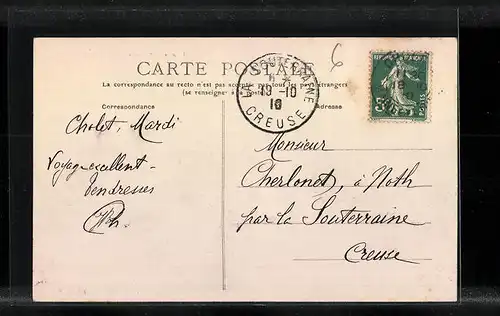 6
CARTE POSTALE
La correspondance au recto n'est pas acceptée par tous les pays étrangers
(se renseigner à la Poste)
Correspondance
Adresse
LA SOUTERRAINE
19-10
10
CREUSE
POSTES
Cholet, Mardi
Voyage excellent -
Tendresses
Monsieur
Cherlonet, à Noth
par la Souterraine
Creuse